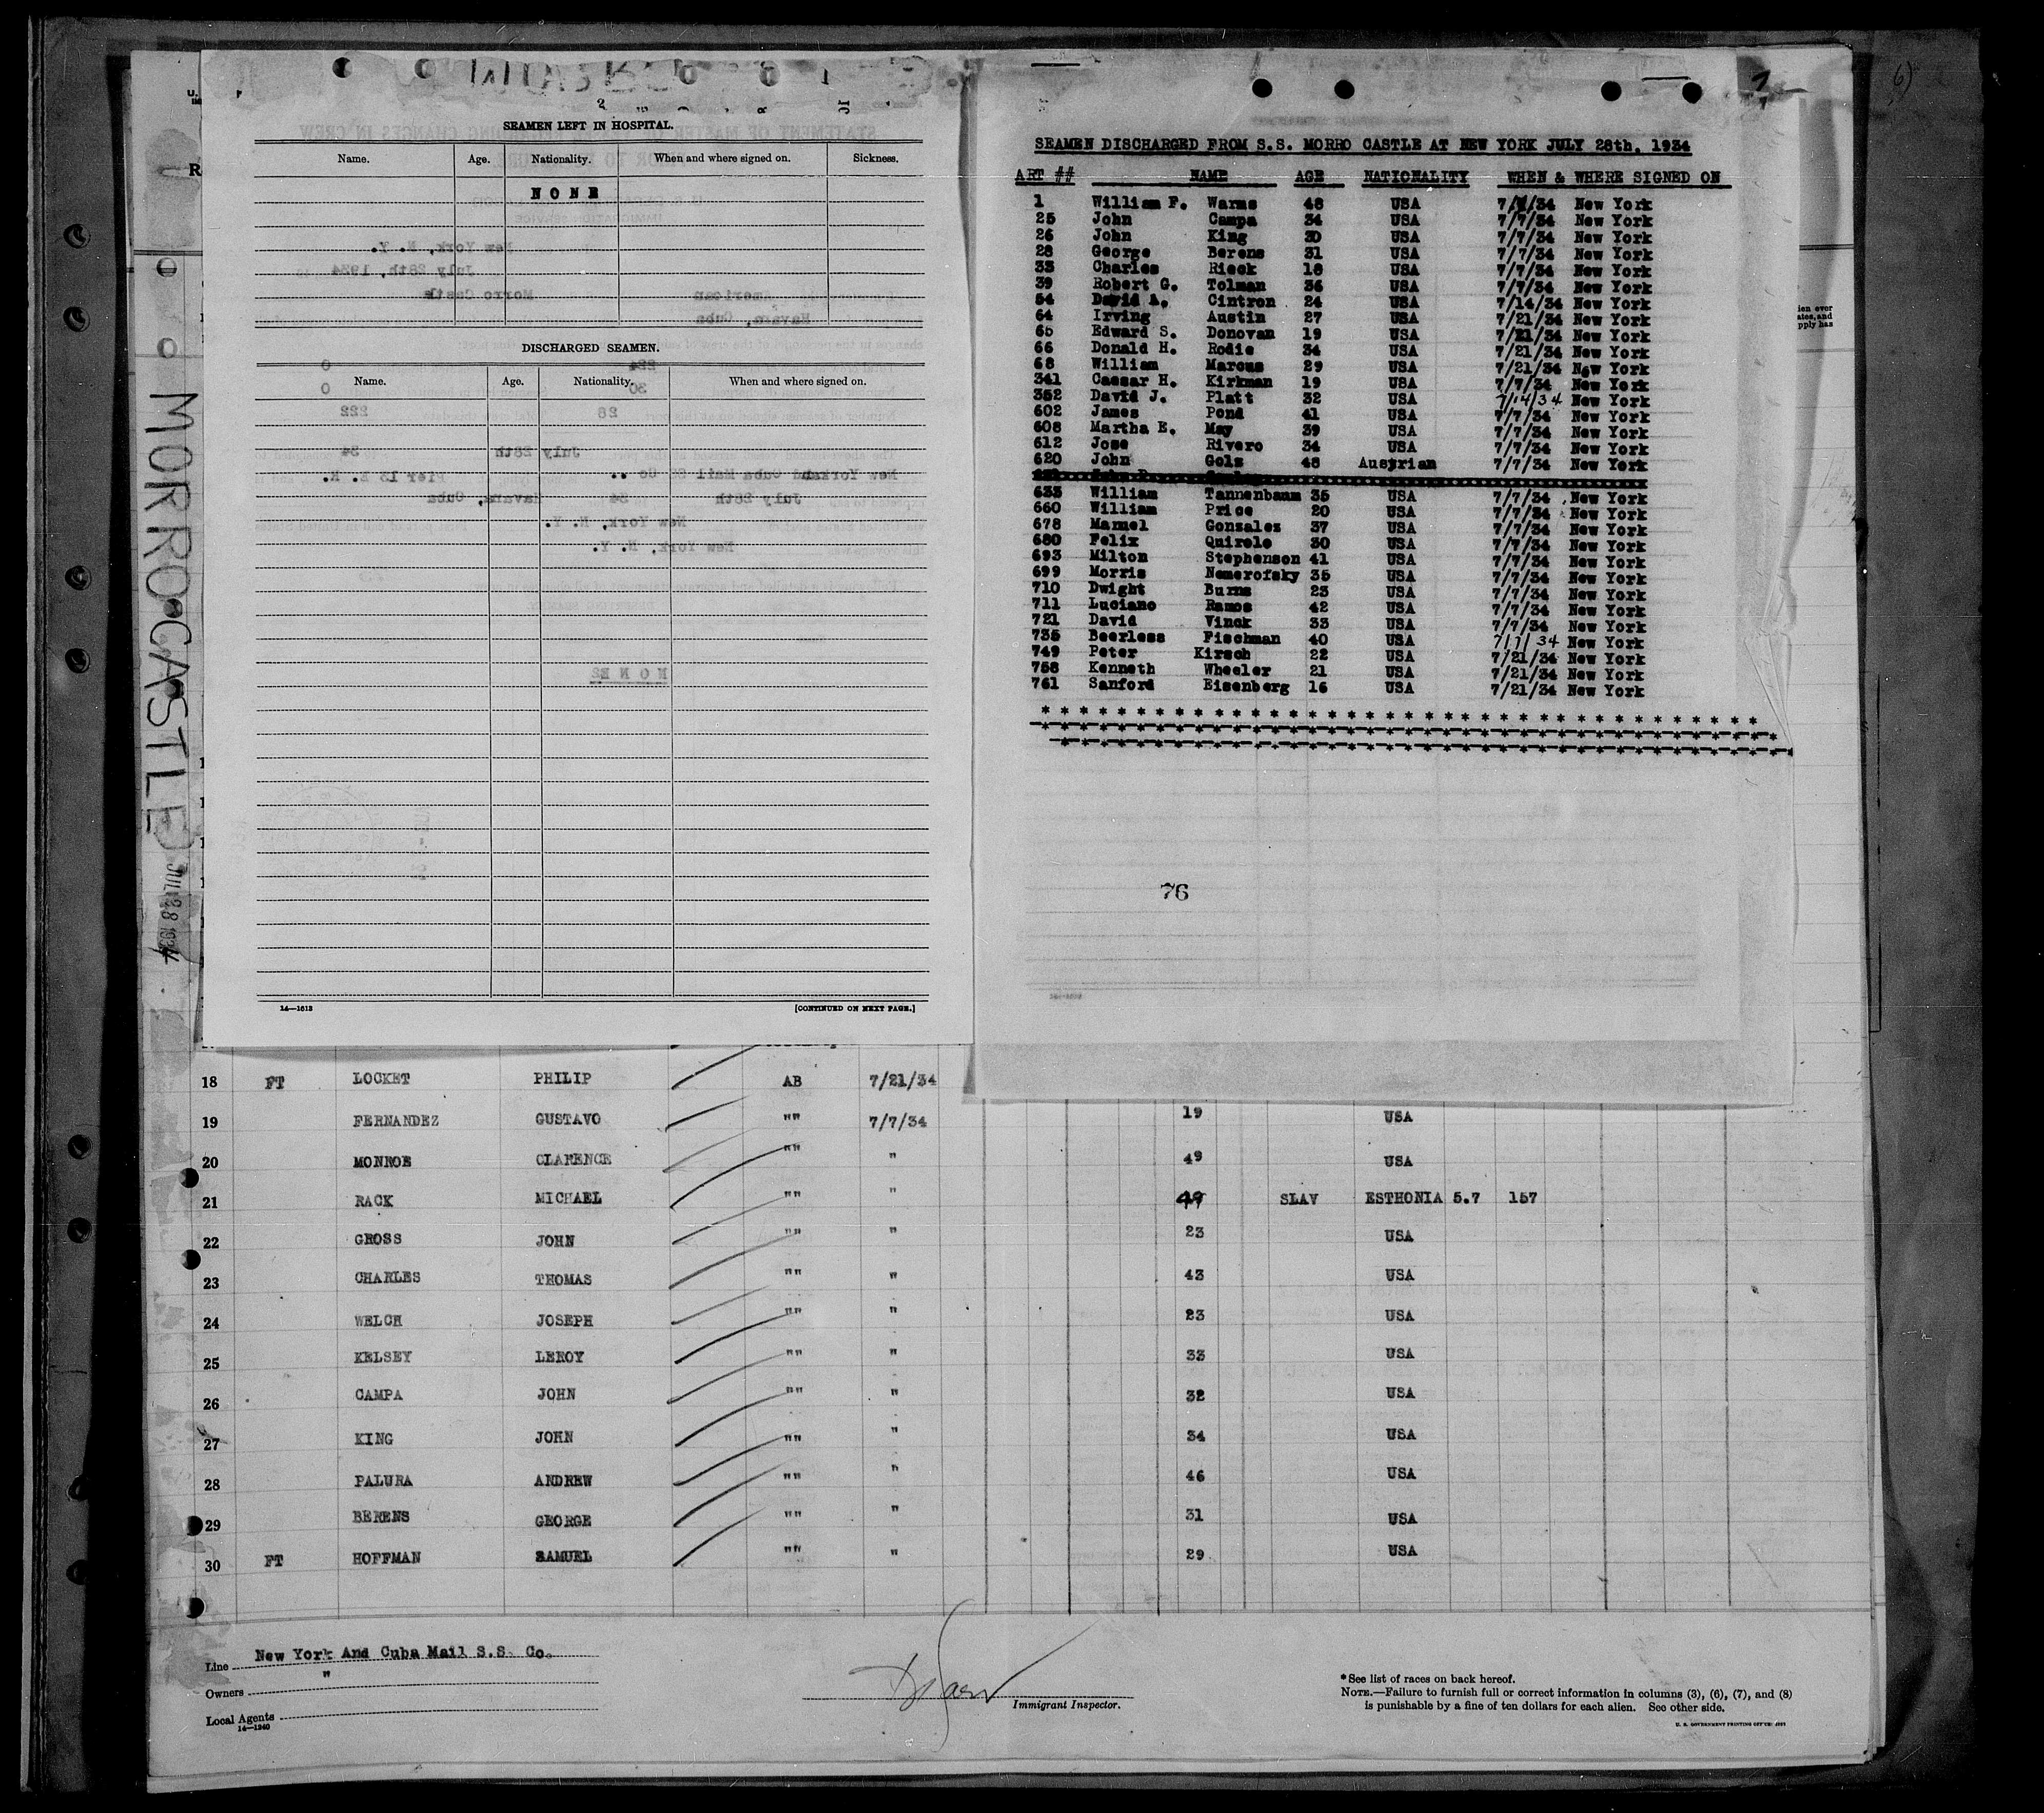 MORRO CASTLE
JUL 28 1934
SEAMEN LEFT IN HOSPITAL.
Name. Age. Nationality. When and where signed on. Sickness.
NONE
DISCHARGED SEAMEN.
Name. Age. Nationality. When and where signed on.
14—1613 [CONTINUED ON NEXT PAGE.]
SEAMEN DISCHARGED FROM S.S. MORRO CASTLE AT NEW YORK JULY 28th, 1934
ART ## NAME AGE NATIONALITY WHEN & WHERE SIGNED ON
1 William F. Warms 48 USA 7/7/34 New York
25 John Campa 34 USA 7/7/34 New York
26 John King 30 USA 7/7/34 New York
28 George Berens 31 USA 7/7/34 New York
33 Charles Rieck 18 USA 7/7/34 New York
39 Robert G. Tolman 36 USA 7/7/34 New York
54 David A. Cintron 24 USA 7/14/34 New York
64 Irving Austin 27 USA 7/21/34 New York
65 Edward S. Donovan 19 USA 7/21/34 New York
66 Donald H. Rodie 34 USA 7/21/34 New York
68 William Marcus 29 USA 7/21/34 New York
341 Caesar H. Kirkman 19 USA 7/7/34 New York
352 David J. Platt 32 USA 7/14/34 New York
602 James Pond 41 USA 7/7/34 New York
608 Martha E. May 39 USA 7/7/34 New York
612 Jose Rivero 34 USA 7/7/34 New York
620 John Golz 48 Austrian 7/7/34 New York
633 William Tannenbaum 35 USA 7/7/34 New York
660 William Price 20 USA 7/7/34 New York
678 Manuel Gonzalez 37 USA 7/7/34 New York
680 Felix Quirolo 30 USA 7/7/34 New York
693 Milton Stephenson 41 USA 7/7/34 New York
699 Morris Nemerofsky 35 USA 7/7/34 New York
710 Dwight Burns 23 USA 7/7/34 New York
711 Luciano Ramos 42 USA 7/7/34 New York
721 David Vinck 33 USA 7/7/34 New York
735 Beerless Fischman 40 USA 7/7/34 New York
749 Peter Kirsch 22 USA 7/21/34 New York
758 Kenneth Wheeler 21 USA 7/21/34 New York
761 Sanford Eisenberg 16 USA 7/21/34 New York
76
18 FT LOCKET PHILIP AB 7/21/34
19 FERNANDEZ GUSTAVO "" 7/7/34 19 USA
20 MONROE CLARENCE "" " 49 USA
21 RACK MICHAEL "" " SLAV ESTHONIA 5.7 157
22 GROSS JOHN "" " 23 USA
23 CHARLES THOMAS "" " 43 USA
24 WELCH JOSEPH "" " 23 USA
25 KELSEY LEROY "" " 33 USA
26 CAMPA JOHN "" " 32 USA
27 KING JOHN "" " 34 USA
28 PALURA ANDREW "" " 46 USA
29 BERENS GEORGE "" " 31 USA
30 FT HOFFMAN SAMUEL "" " 29 USA
Line New York And Cuba Mail S.S. Co.
Owners "
Local Agents
14—1240
Immigrant Inspector.
* See list of races on back hereof.
NOTE.—Failure to furnish full or correct information in columns (3), (6), (7), and (8)
is punishable by a fine of ten dollars for each alien. See other side.
U. S. GOVERNMENT PRINTING OFFICE